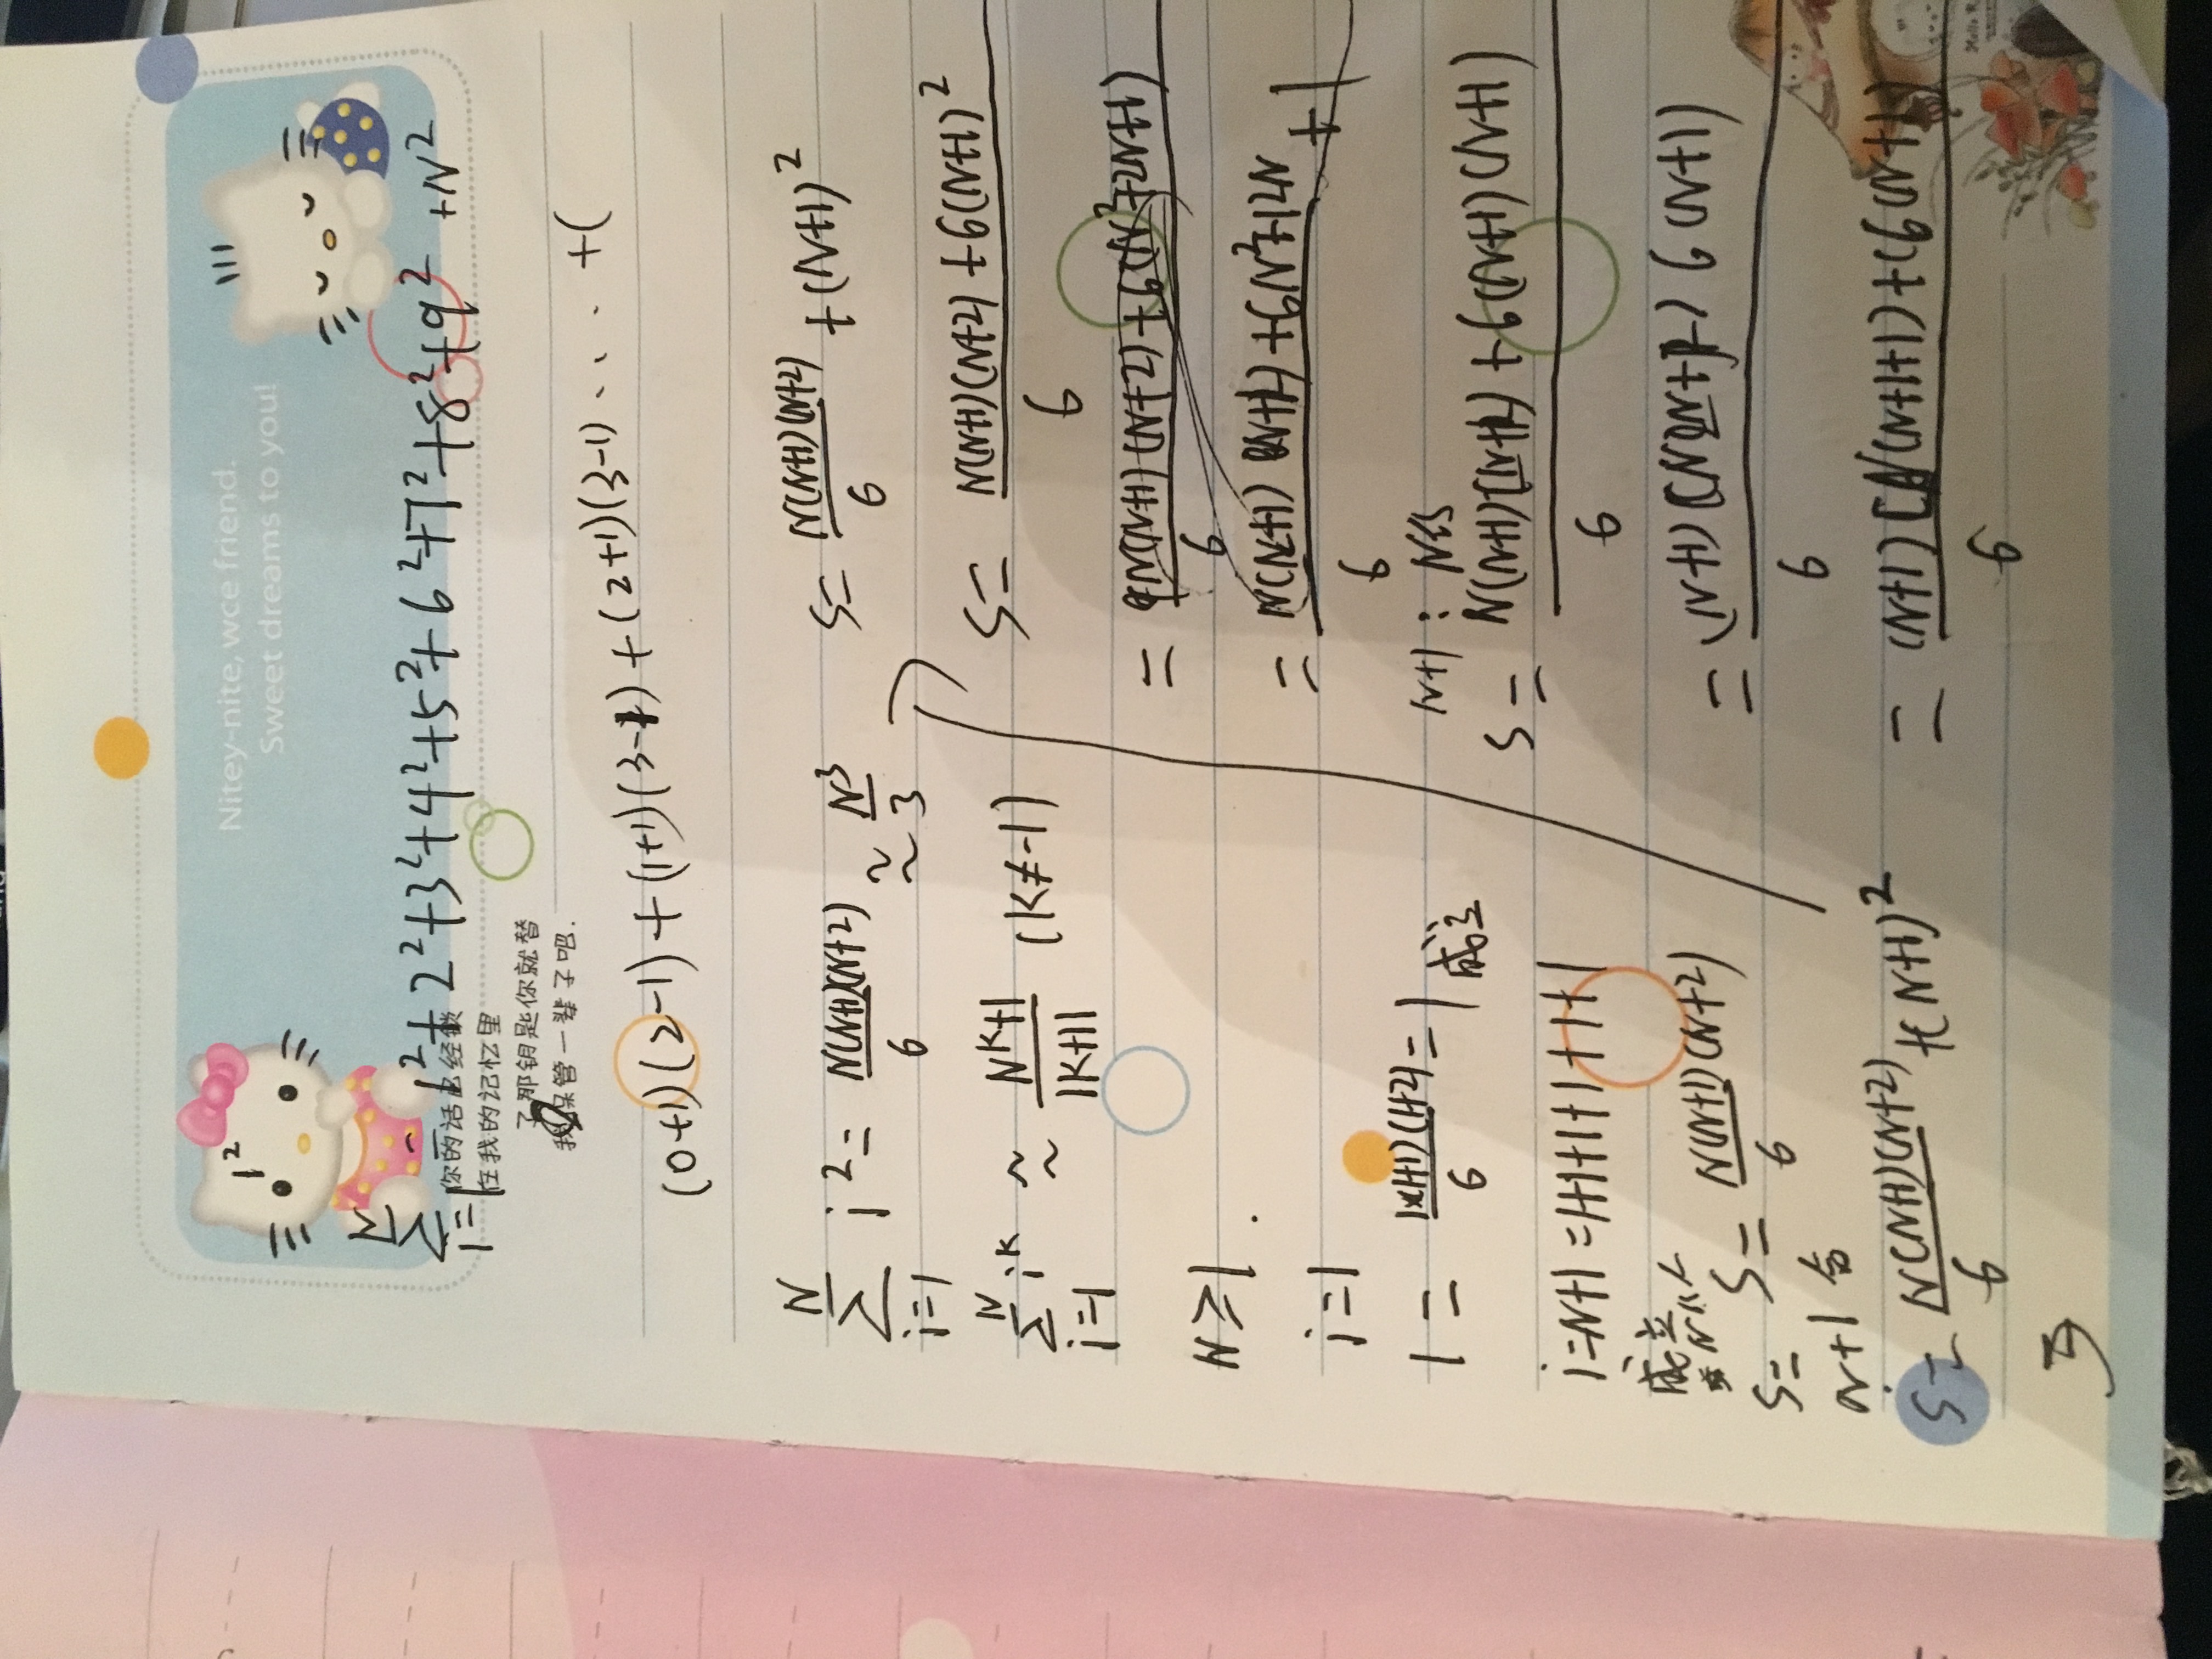 Nitey-nite, wce friend.
Sweet dreams to you!
1²
N
∑ = 1²+2²+3²+4²+5²+6²+7²+8²+9² +N²
i=1
你的话已经锁
在我的记忆里
了那钥匙你就替
我保管一辈子吧.
(0+1)(2-1)+(1+1)(3-1)+(2+1)(3-1)... +(
N
∑ i² = N(N+1)(N+2)/6 ≈ N³/3
i=1
N
∑ i^K ≈ N^K+1/|K+1| (K≠-1)
i=1
N≥1.
i=1
1 = 1×(1+1)(1+2)/6 = 1 成立
i=N+1=1+1+1+1+1+1
成立
S= S= N(N+1)(N+2)/6
N+1 合
S= N(N+1)(N+2)/6 +(N+1)²
S= N(N+1)(N+2)/6 +(N+1)²
S= N(N+1)(N+2)+6(N+1)²/6
= N(N+1)(N+2)+6(N²+2N+1)/6
= N(N+1) +6N²+12N/6 +1
N+1:
S= N(N+1) +6(N+1)(N+1)/6
= (N+1) 6(N+1)/6
= (N+1)[N(N+1+1)+(6(N+1)/6